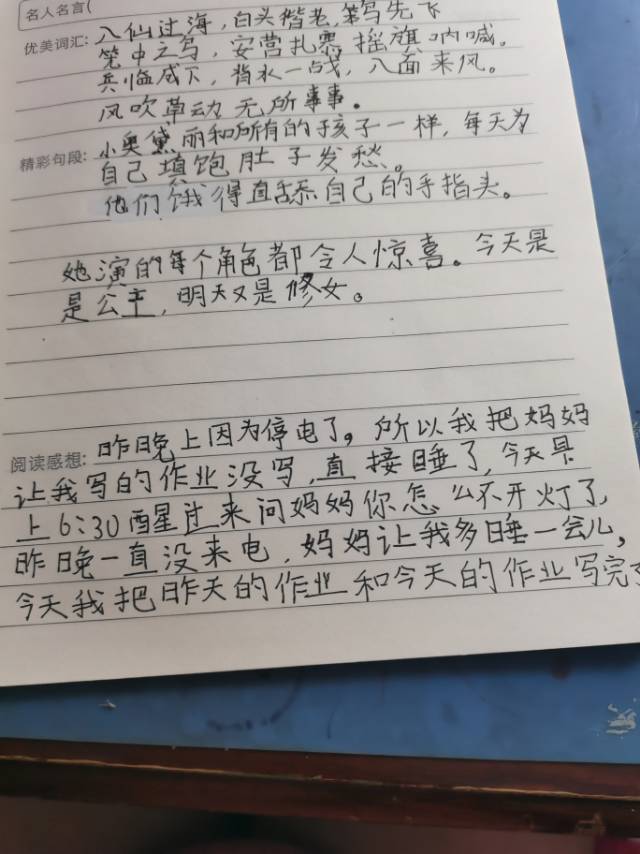 名人名言(
优美词汇: 八仙过海,白头楷老,笨鸟先飞
笼中之鸟,安营扎寨 摇旗呐喊。
兵临城下,背水一战,八面来风。
风吹草动 无所事事。
精彩句段: 小奥黛丽和所有的孩子一样,每天为
自己填饱肚子发愁。
他们饿得直舔自己的手指头。
她演的每个角色都令人惊喜。今天是
是公主,明天又是修女。
阅读感想: 昨晚上因为停电了。所以我把妈妈
让我写的作业没写,直接睡了,今天早
上6:30醒星过来问妈妈你怎么不开灯了,
昨晚一直没来电,妈妈让我多睡一会儿,
今天我把昨天的作业和今天的作业写完了